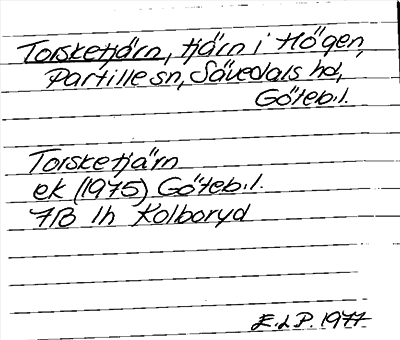 Torsketjärn, tjärn i Högen,
Partille sn, Sävedals hd,
Göteb.l.
Torsketjärn
ek (1975) Göteb.l.
7B 1h Kolboryd
E.L.P. 1977